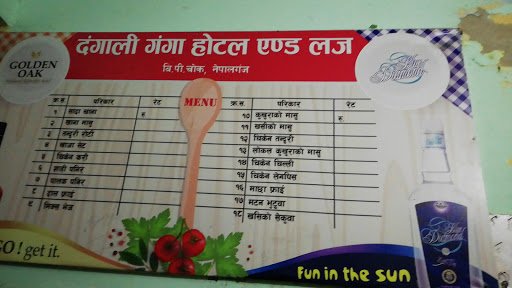 दंगाली गंगा होटल एण्ड लज
बि.पी.चोक, नेपालगंज
GOLDEN
OAK
Blue
Diamond
MENU
क्र.स. परिकार रेट
रु
१ सादा खाना
२ खाना मासु
३ तन्दुरी रोटी
४ खाजा सेट
५ चिकेन करी
६ साही पनिर
७ पालक पनिर
८ दाल फ्राई
९ मिक्स भेज
क्र.स. परिकार रेट
रु
१० कुखुराको मासु
११ खसीको मासु
१२ चिकेन तन्दुरी
१३ लोकल कुखुराको मासु
१४ चिकेन चिल्ली
१५ चिकेन लेगपिस
१६ माछा फ्राई
१७ मटन भुटुवा
१८ खसिको सेकुवा
GO! get it.
Fun in the sun
Blue
Diamond